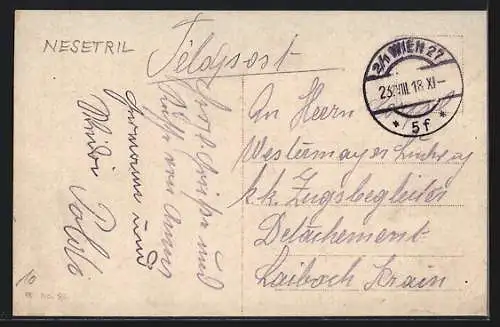 NESETRIL
Feldpost
2/1 WIEN 27
23.VIII.18.XI-
* 5f *
Herzl. Grüße und
Küsse von
Hermann und
An Herrn
Westermayer Ludwig
k.k. Zugsbegleiter
Detachement
Laibach Krain
10